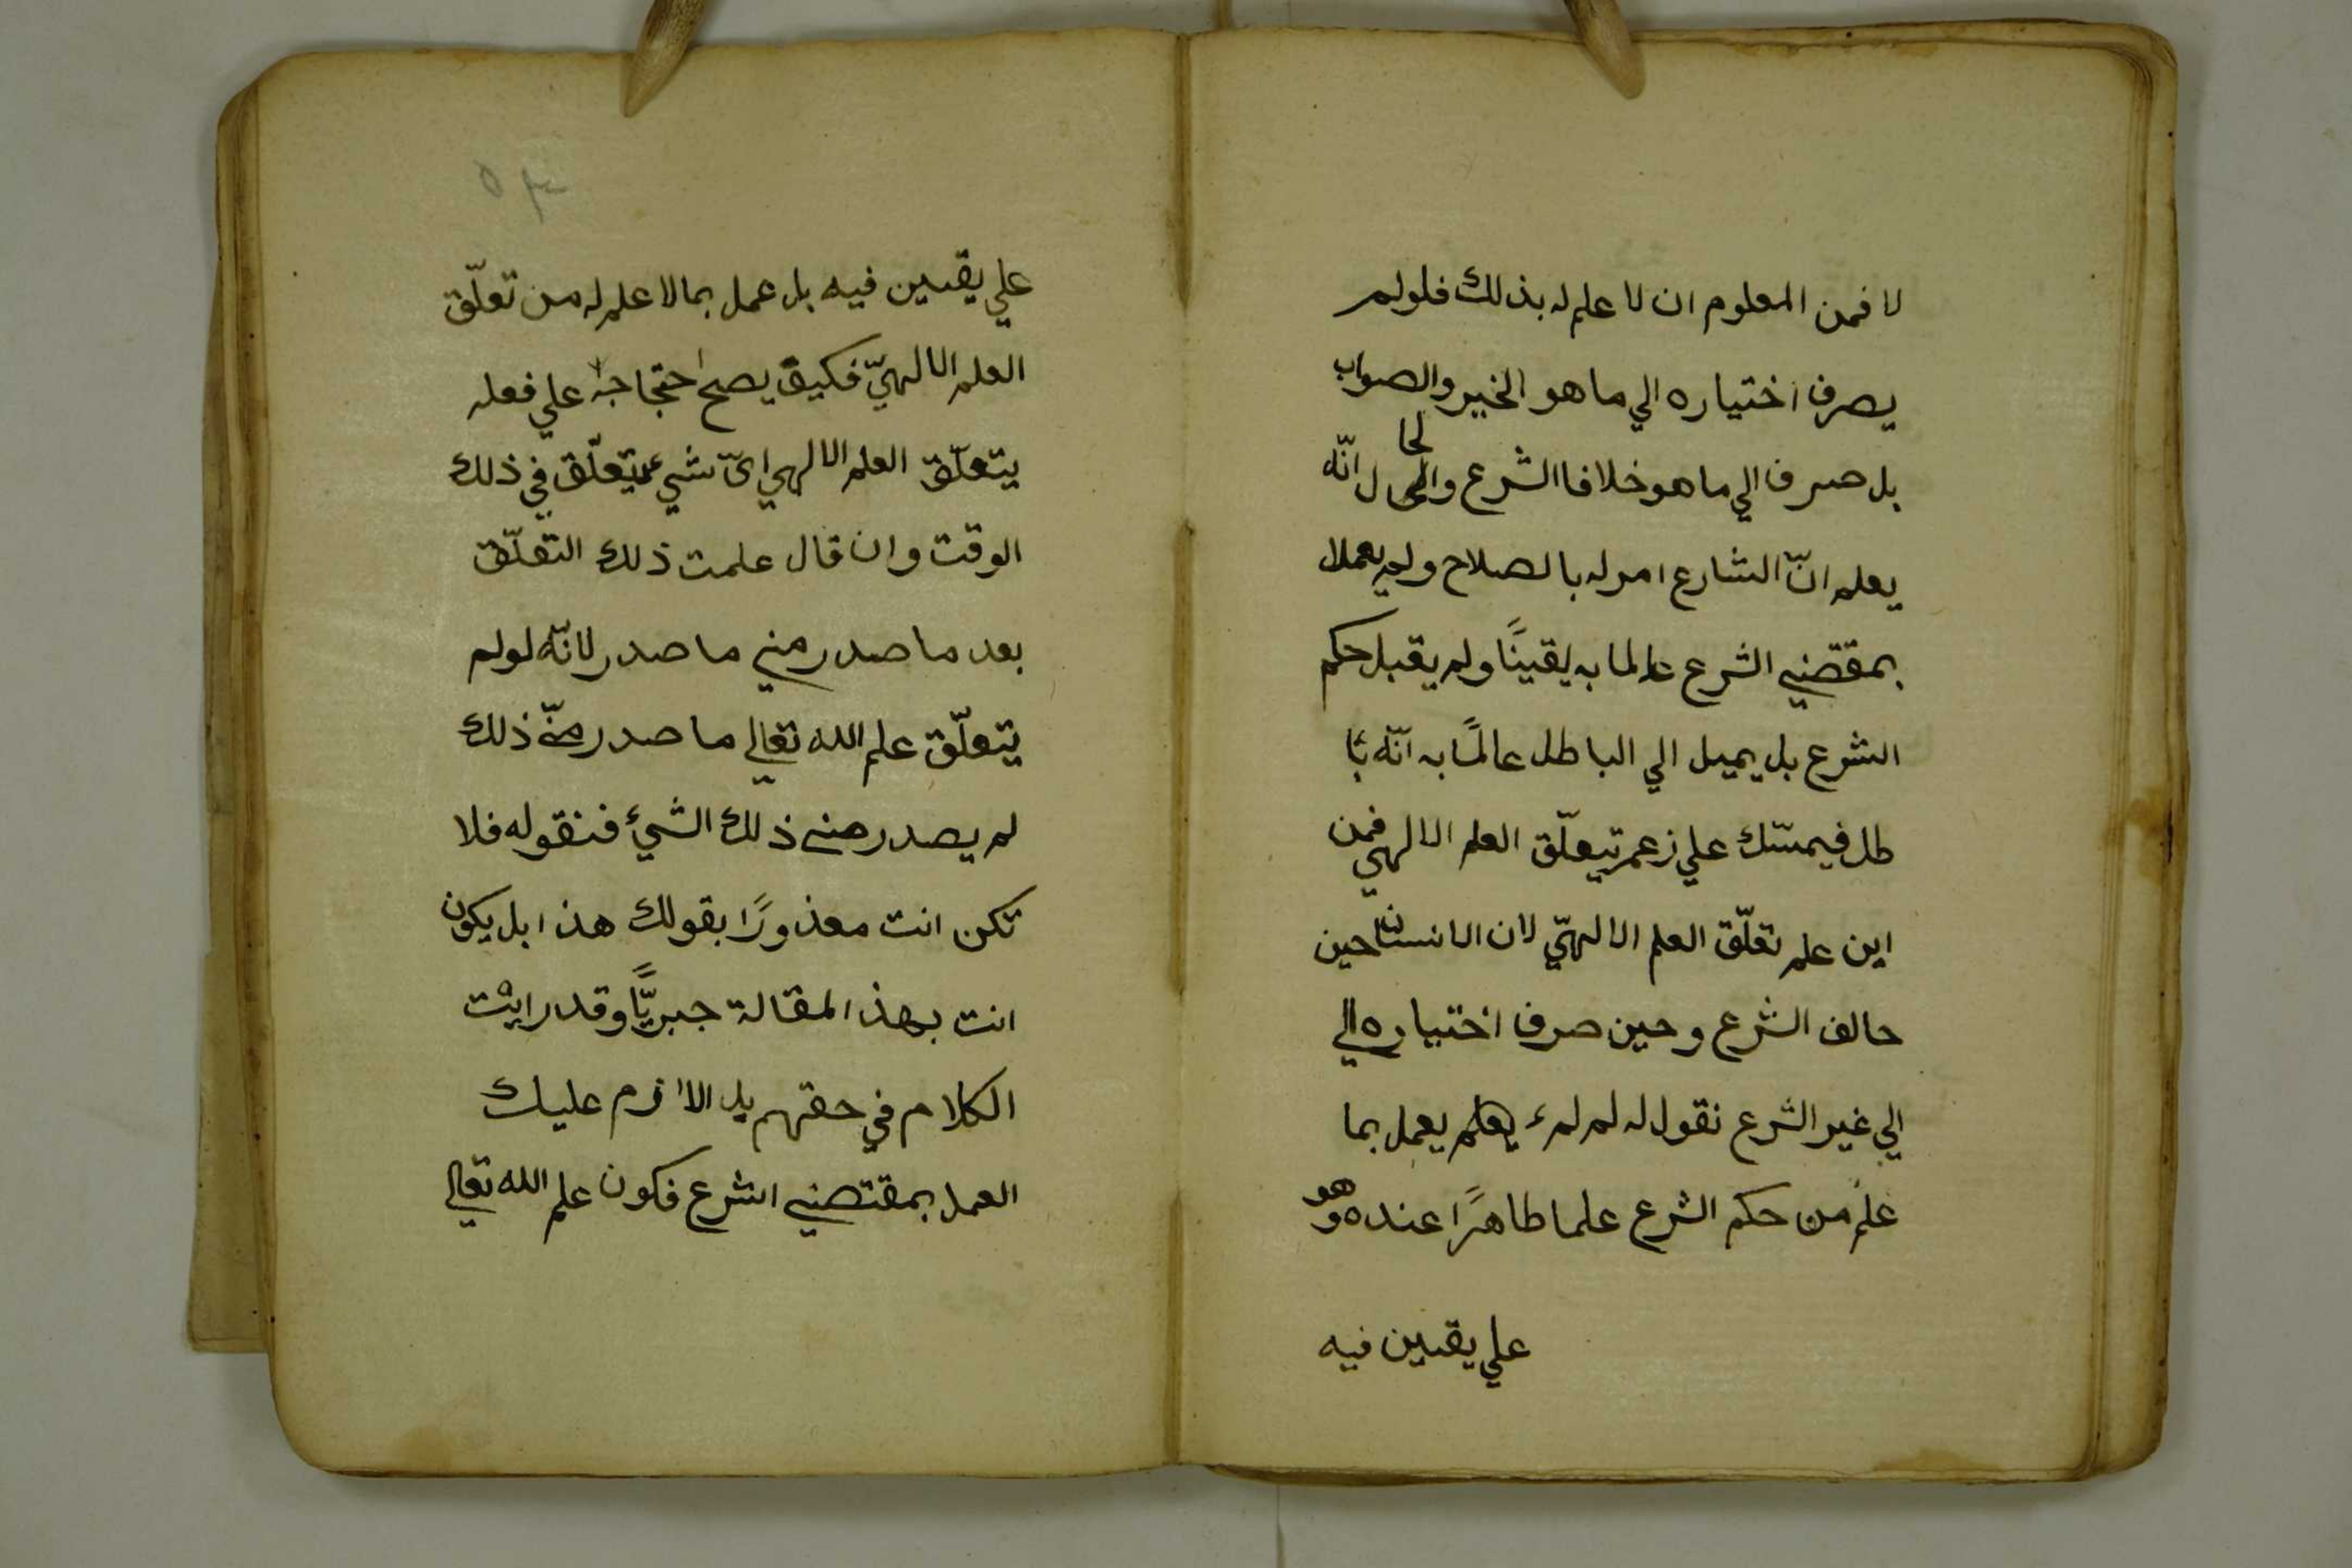 لا فمن المعلوم ان لا علم له بذلك فلو لم
يصرف اختياره الي ما هو الخير والصواب
بل صرف الي ما هو خلاف الشرع والحال انّه
يعلم انّ الشارع امر له بالصلاح ولم يعمل
بمقتضي الشرع عالما به يقينًا ولم يقبل حكم
الشرع بل يميل الي الباطل عالمًا به انّه با
طل فيمسّك علي زعم تبعلّق العلم الالهي فمن
اين علم تعلّق العلم الالهيّ لان الانسان حين
حالف الشرع وحين صرف اختياره الي
الي غير الشرع نقول له لم لم يعمل بما
علم من حكم الشرع علما طاهرًا عنده وهو
علي يقين فيه
٥٣
علي يقين فيه بل عمل بما لا علم له من تعلّق
العلم الالهيّ فكيف يصح احتجاجه علي فعله
يتعلّق العلم الالهي ايّ شيء يتعلّق في ذلك
الوقت وان قال علمت ذلك التعلّق
بعد ما صدر مني ما صدر لانّه لو لم
يتعلّق علم الله تعالي ما صدر منّي ذلك
لم يصدر مني ذلك الشيء فنقوله فلا
تكن انت معذورًا بقولك هذا بل يكون
انت بهذ المقالة جبريًّا وقد رايت
الكلام في حقهم بل الالزم عليك
العمل بمقتضي الشرع فكون علم الله تعالي